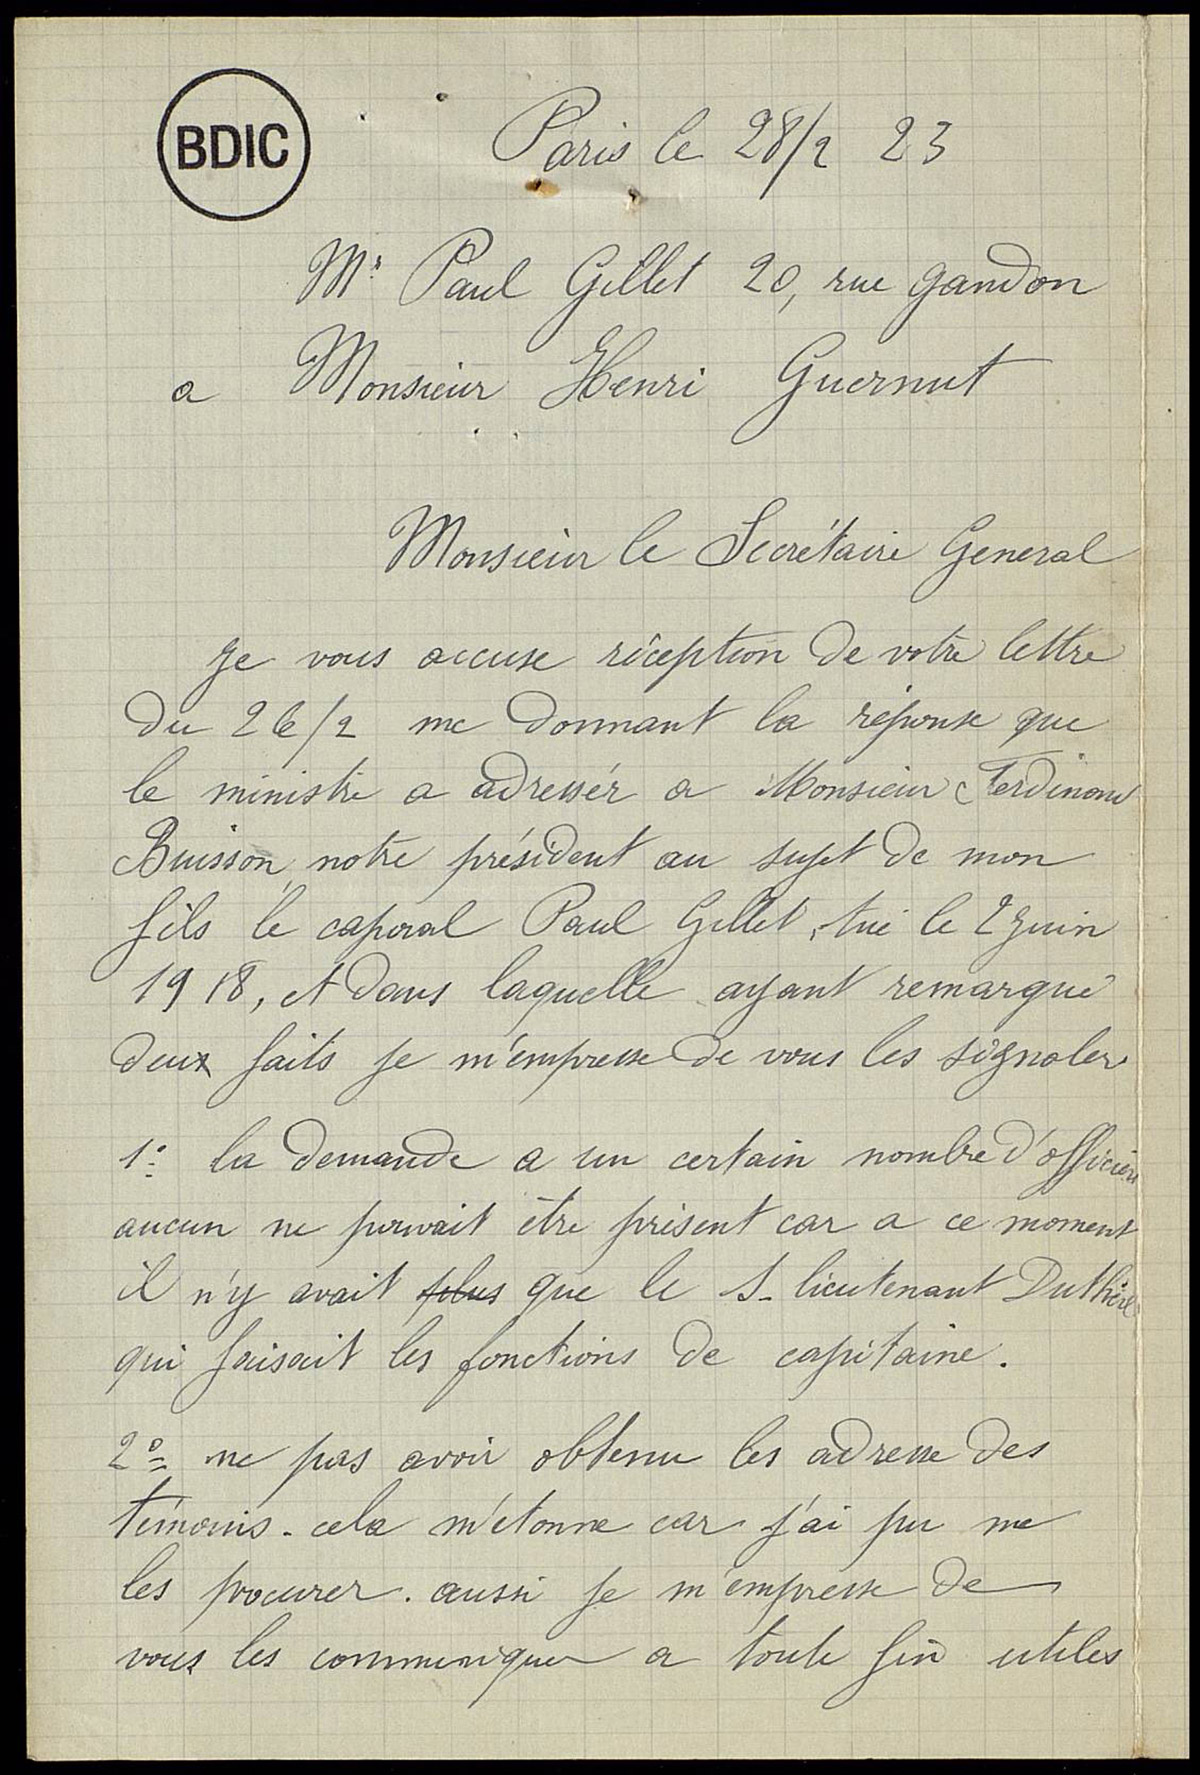 BDIC
Paris le 28/2 23
Mr Paul Gillet 20, rue gandon
a Monsieur Henri Guernut
Monsieur le Secrétaire General
Je vous accuse réception de votre lettre
du 26/2 me donnant la réponse que
le ministre a adressér a Monsieur Ferdinand
Buisson, notre président au sujet de mon
fils le caporal Paul Gillet, tué le 2 juin
1918, et dans laquelle ayant remarqué
deux faits je m'empresse de vous les signaler
1° la demande a un certain nombre d'officiers
aucun ne pouvait être présent car a ce moment
il n'y avait plus que le S- lieutenant
qui faisait les fonctions de capitaine.
2° ne pas avoir obtenu les adresse des
témoins. cela m'étonne car j'ai pu me
les procurer. aussi je m'empresse de
vous les communiquer a toute fin utiles